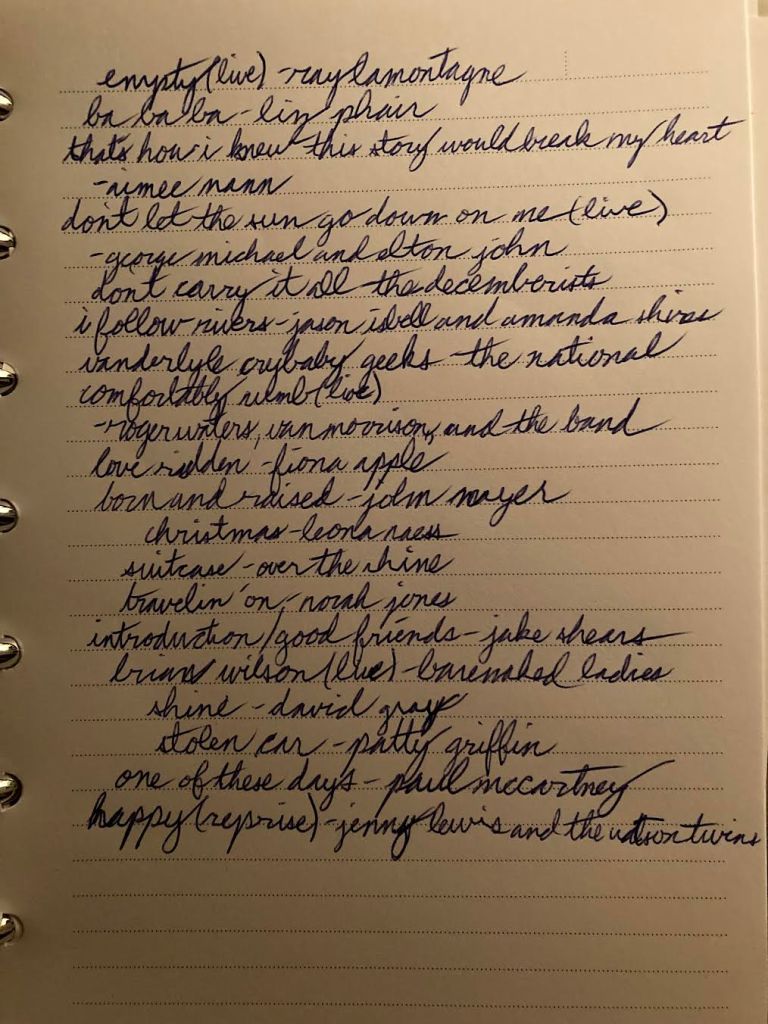 empty (live) - ray lamontagne
ba ba ba - liz phair
that's how i knew this story would break my heart
- aimee mann
don't let the sun go down on me (live)
- george michael and elton john
don't carry it all - the decemberists
i follow rivers - jason isbell and amanda shires
vanderlyle crybaby geeks - the national
comfortably numb (live)
- roger waters, van morrison, and the band
love ridden - fiona apple
born and raised - john mayer
christmas - leona naess
suitcase - over the rhine
travelin' on - norah jones
introduction/good friends - jake shears
brian wilson (live) - barenaked ladies
shine - david gray
stolen car - patty griffin
one of these days - paul mccartney
happy (reprise) - jenny lewis and the watson twins